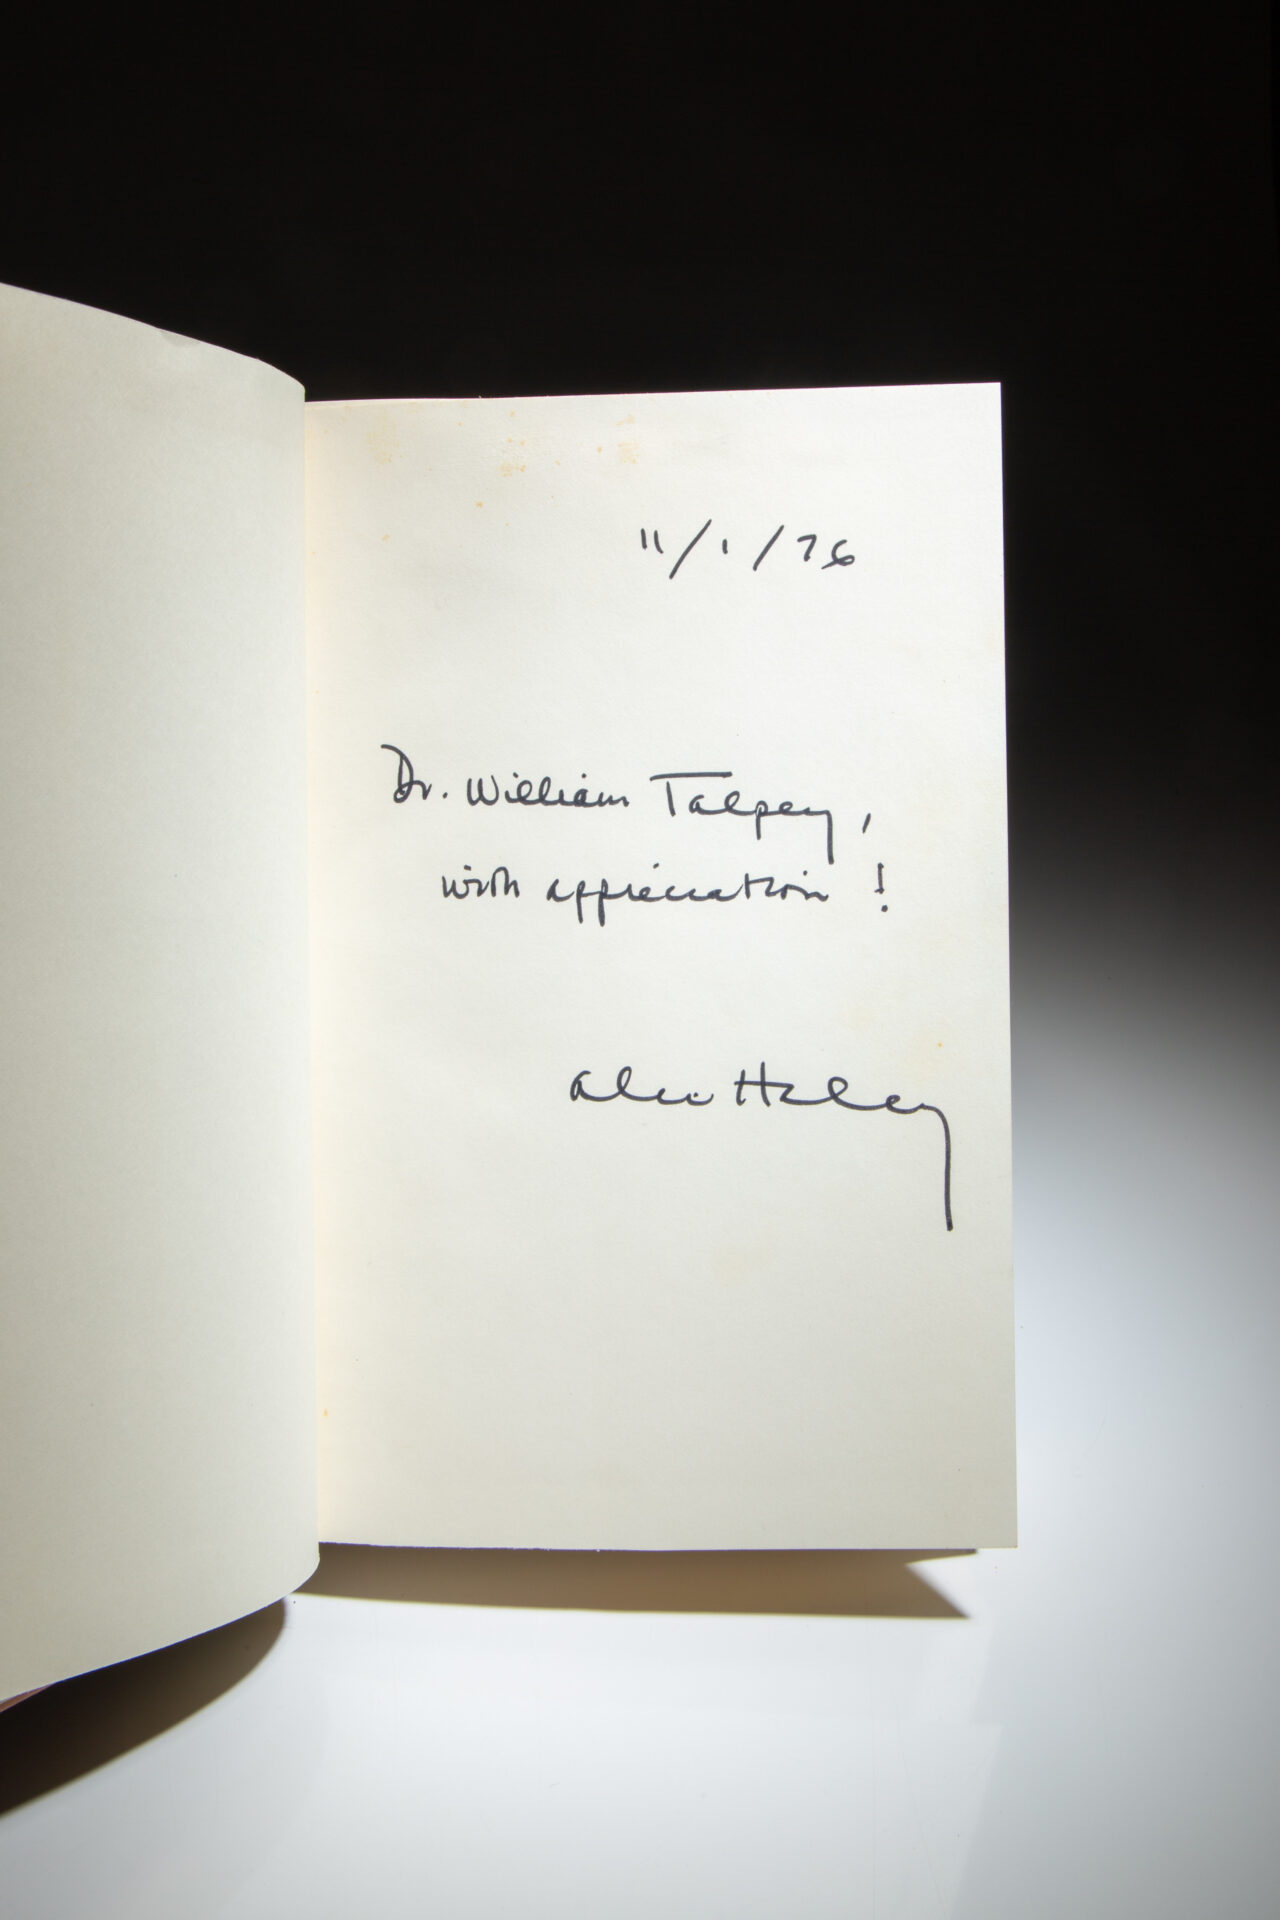 11/1/76
Dr. William Talpey,
with appreciation!
Alex Haley